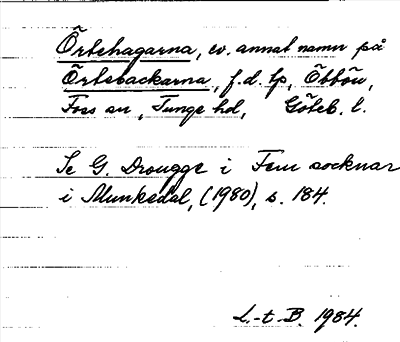 Örtehagarna, ev. annat namn på
Örtebackarna, f.d. lp, Öbbön,
Foss sn, Tunge hd, Göteb. l.
Se G. Drougge i Fem socknar
i Munkedal, (1980), s. 184.
L.-t B. 1984.